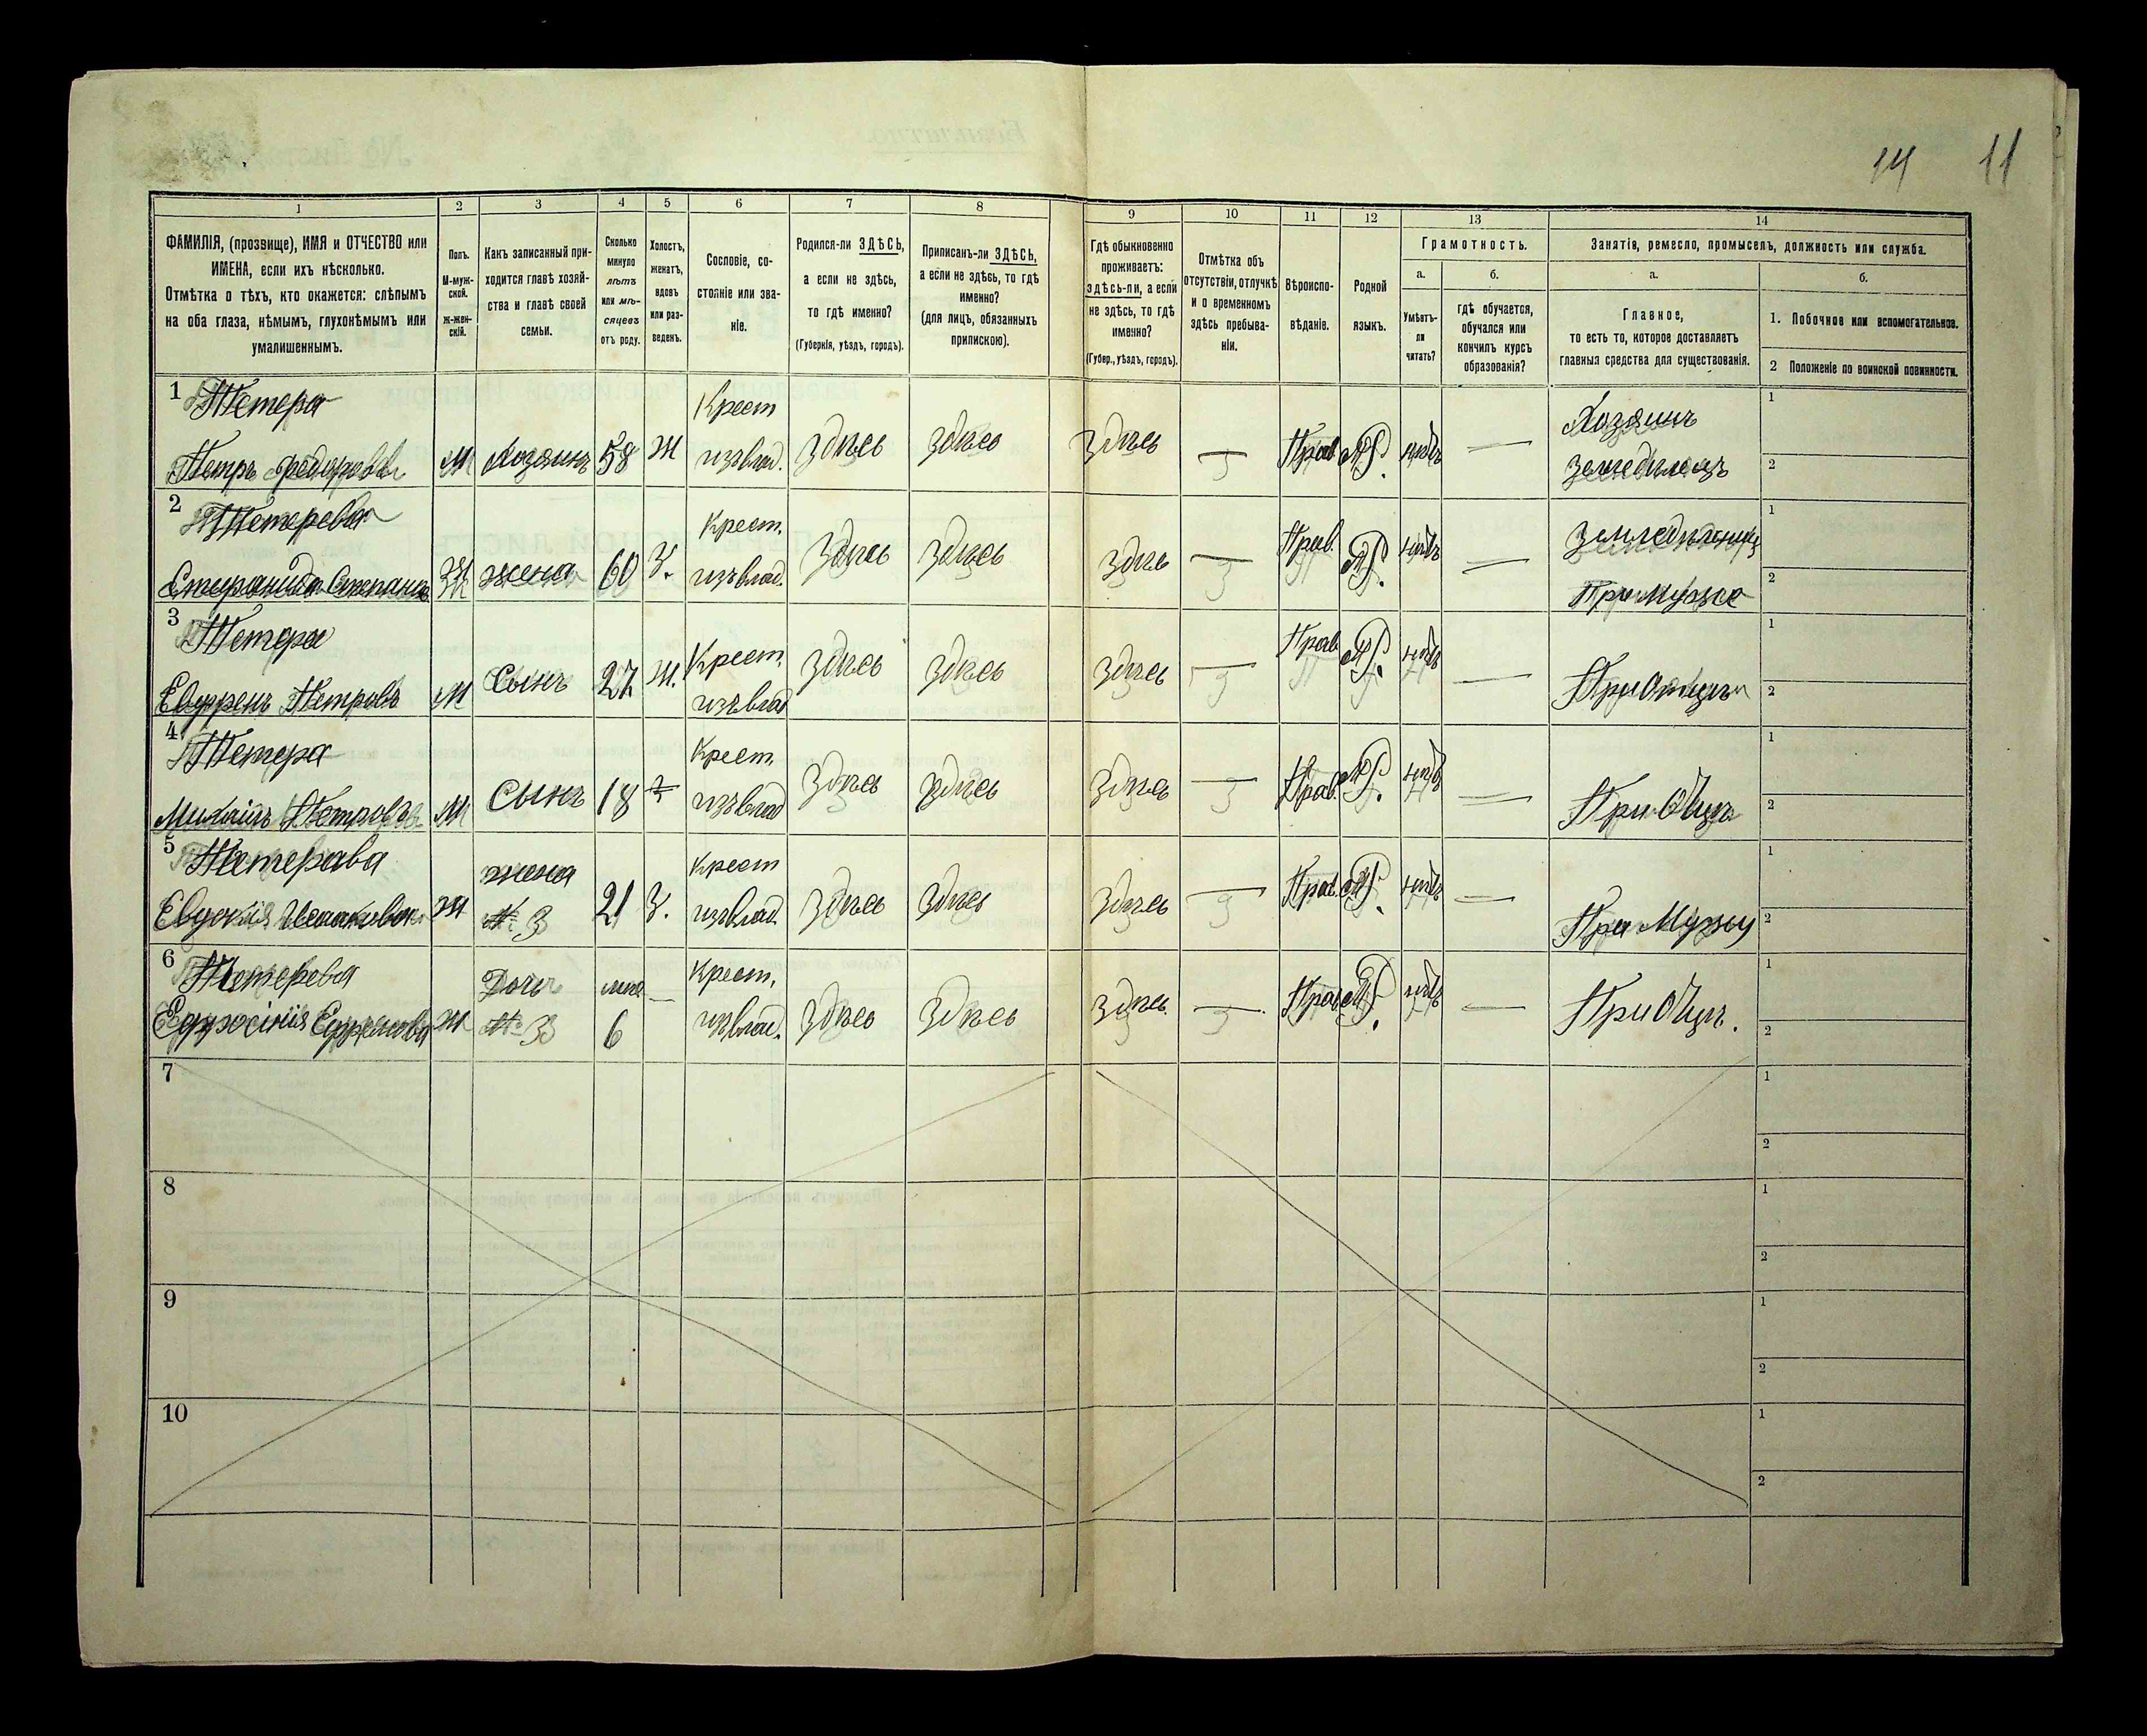 14 11
1 2 3 4 5 6 7 8 9 10 11 12 13 14
ФАМИЛІЯ, (прозвище), ИМЯ и ОТЧЕСТВО или
ИМЕНА, если ихъ нѣсколько.
Отмѣтка о тѣхъ, кто окажется: слѣпымъ
на оба глаза, нѣмымъ, глухонѣмымъ или
умалишеннымъ.
Полъ.
М-муж-
ской.
Ж-жен-
скій.
Какъ записанный при-
ходится главѣ хозяй-
ства и главѣ своей
семьи.
Сколько
минуло
лѣтъ
или мѣ-
сяцевъ
отъ роду.
Холостъ,
женатъ,
вдовъ
или раз-
веденъ.
Сословіе, со-
стояніе или зва-
ніе.
Родился-ли ЗДѢСЬ,
а если не здѣсь,
то гдѣ именно?
(Губернія, уѣздъ, городъ).
Приписанъ-ли ЗДѢСЬ,
а если не здѣсь, то гдѣ
именно?
(для лицъ, обязанныхъ
припискою).
Гдѣ обыкновенно
проживаетъ:
здѣсь-ли, а если
не здѣсь, то гдѣ
именно?
(Губер., уѣздъ, городъ).
Отмѣтка объ
отсутствіи, отлучкѣ
и о временномъ
здѣсь пребыва-
ніи.
Вѣроиспо-
вѣданіе.
Родной
языкъ.
Грамотность.
а.
Умѣетъ-
ли
читать?
б.
гдѣ обучается,
обучался или
кончилъ курсъ
образованія?
Занятія, ремесло, промыселъ, должность или служба.
а.
Главное,
то есть то, которое доставляетъ
главныя средства для существованія.
б.
1. Побочное или вспомогательное.
2 Положеніе по воинской повинности.
1 Тетера Крест Хозяинъ 1
Петръ Федоровъ М Хозяинъ 58 Ж изъ влад. Здѣсь Здѣсь Здѣсь — Прав. нѣтъ — земледѣлецъ 2
2 Тетерева Крест. 1
Степанида Степанов Ж жена 60 З. изъ влад. Здѣсь Здѣсь Здѣсь — Прав. нѣтъ — При Мужѣ 2
3 Тетера Крест. 1
Евфремъ Петровъ М Сынъ 27 Ж. изъ влад Здѣсь Здѣсь Здѣсь — Прав. нѣтъ — При Отцѣ 2
4 Тетера Крест. 1
Михаилъ Петровъ М Сынъ 18 изъ влад Здѣсь Здѣсь Здѣсь — Прав. нѣтъ — При Отцѣ 2
5 Тетерава жена Крест 1
Евдокія Исааковна Ж № 3 21 З. изъ влад. Здѣсь Здѣсь Здѣсь — Прав. нѣтъ — При Мужу 2
6 Тетерева Дочь Крест. 1
Ефросінія Ефремова Ж № 3 6 — изъ влад. Здѣсь Здѣсь Здѣсь — Прав. нѣтъ — При Отцѣ. 2
7 1
2
8 1
2
9 1
2
10 1
2